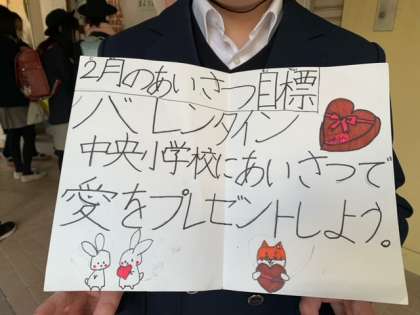 2月のあいさつ目標
バレンタイン
中央小学校にあいさつで
愛をプレゼントしよう。